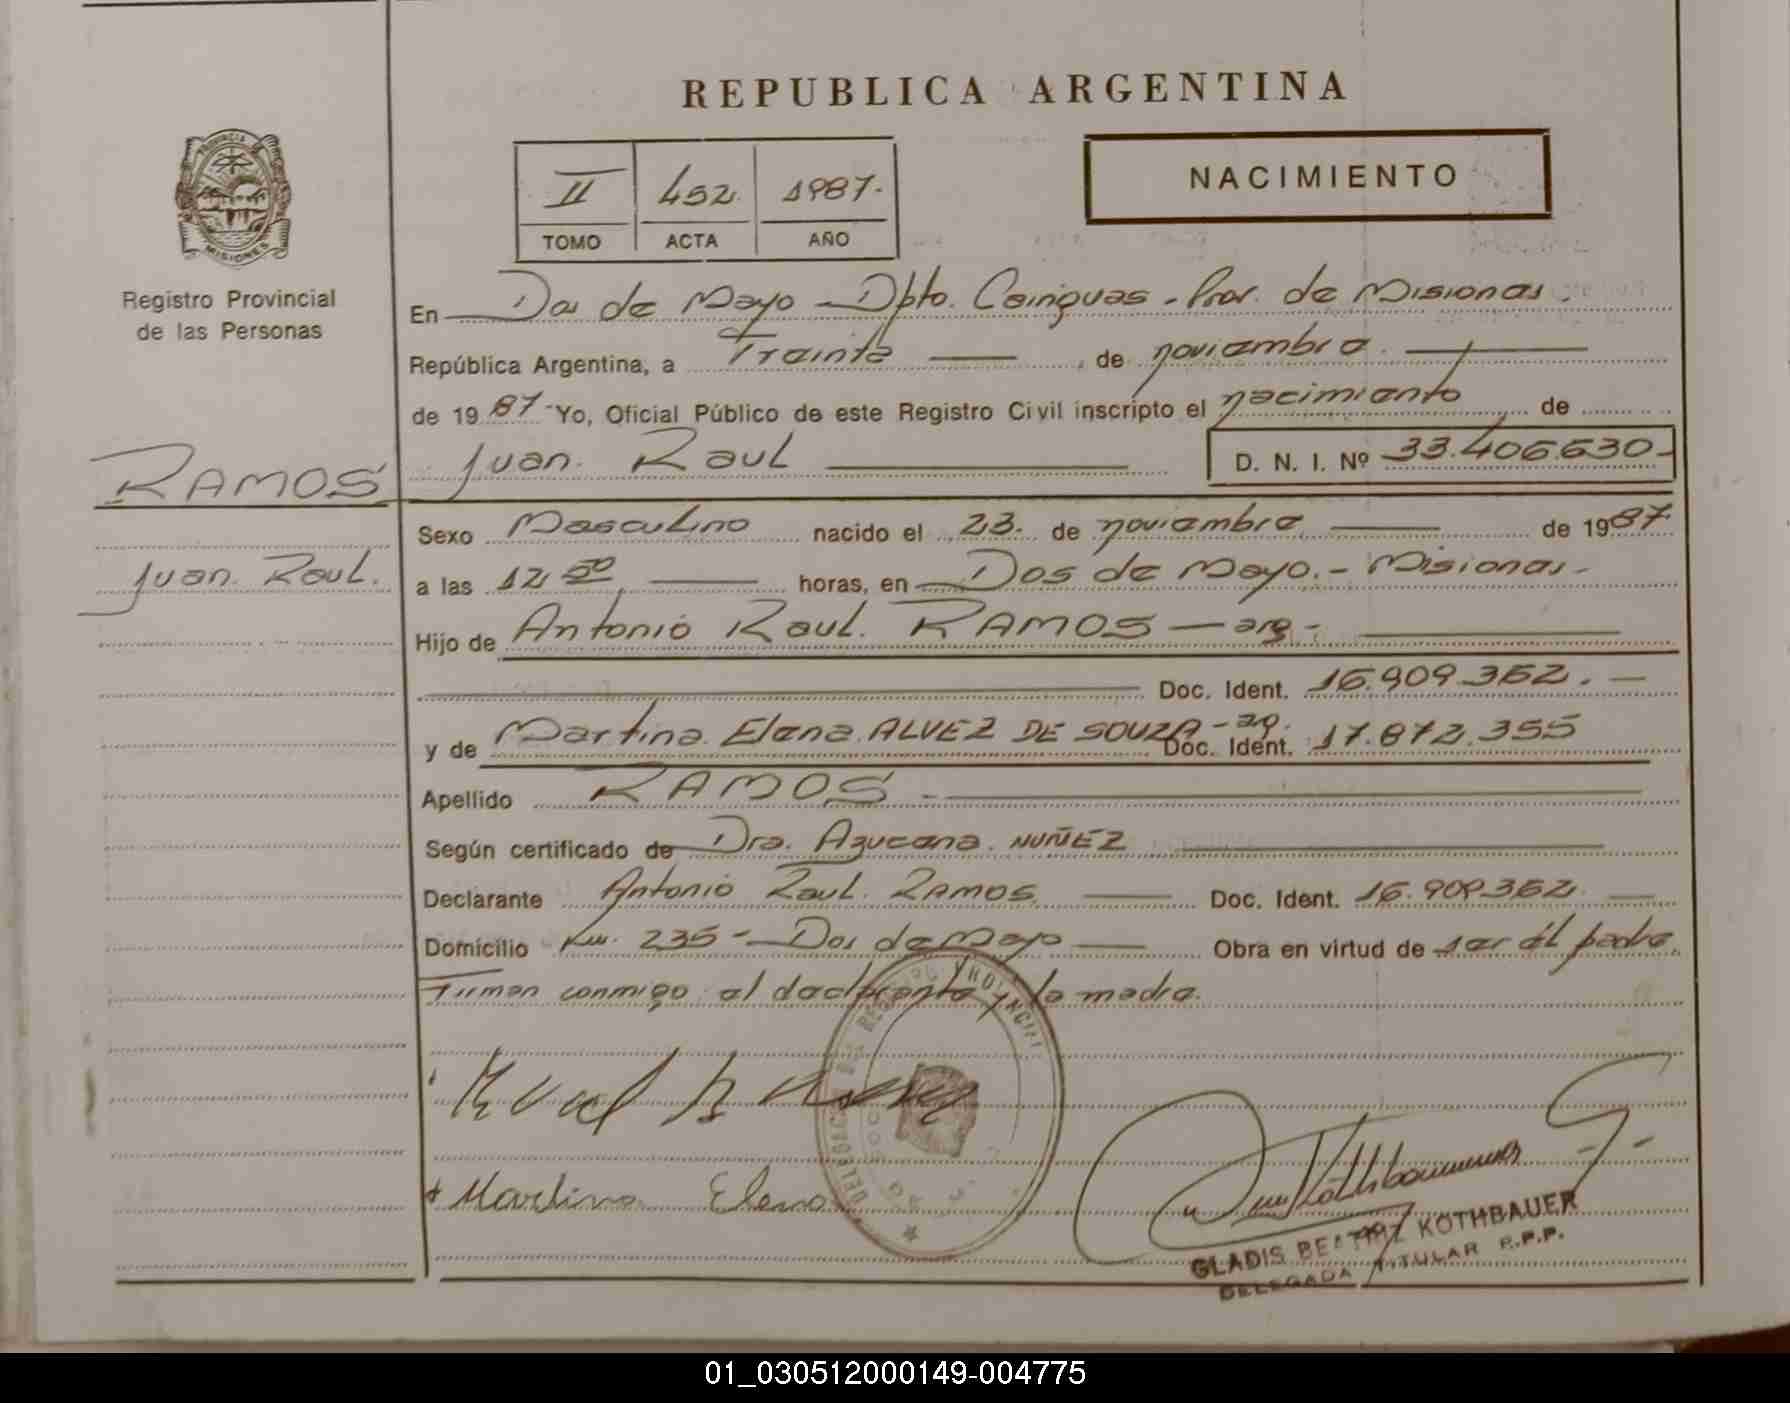 REPUBLICA ARGENTINA
PROVINCIA DE
MISIONES
Registro Provincial
de las Personas
II 452 1987.-
TOMO ACTA AÑO
NACIMIENTO
En Dos de Mayo - Dpto. Cainguas - Prov. de Misiones.
República Argentina, a Treinta , de noviembre.
de 1987 - Yo, Oficial Público de este Registro Civil inscripto el nacimiento de
Juan Raul
D. N. I. Nº 33.406.630-
RAMOS
Juan Raul.
Sexo Masculino nacido el 23. de noviembre de 1987
a las 12 horas, en Dos de Mayo.- Misiones.-
Hijo de Antonio Raul. RAMOS - arg -
Doc. Ident. 16.909.362. -
y de Martina Elena ALVEZ DE SOUZA - arg. Doc. Ident. 17.872.355
Apellido RAMOS -
Según certificado de Dra. Azucena NUÑEZ
Declarante Antonio Raul. RAMOS Doc. Ident. 16.909.362
Domicilio Km. 235 - Dos de Mayo Obra en virtud de ser él padre.
Firman conmigo el declarante y la madre.
Martina Elena
GLADIS BEATRIZ KOTHBAUER
DELEGADA TITULAR R.P.P.
01_030512000149-004775